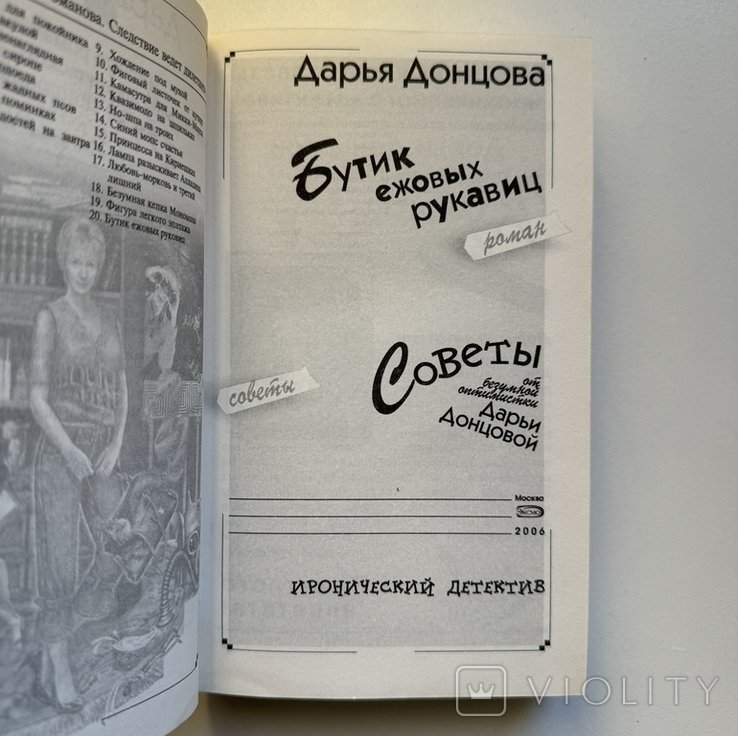 романова. Следствие ведет дилетант
для покойника
акулой
ненаглядная
сиропе
жадных псов
поминках
достей на завтра
9. Хождение под мухой
10. Фиговый листочек от кутюр
11. Камасутра для Микки-Мауса
12. Квазимодо на шпильках
13. Но-шпа на троих
14. Синий мопс счастья
15. Принцесса на Кириешках
16. Лампа разыскивает Алладина
17. Любовь-морковь и третий
лишний
18. Безумная кепка Мономаха
19. Фигура легкого эпатажа
20. Бутик ежовых рукавиц
Дарья Донцова
Бутик
ежовых
рукавиц
роман
Советы
от
безумной
оптимистки
Дарьи
Донцовой
советы
Москва
ЭКСМО
2006
ИРОНИЧЕСКИЙ ДЕТЕКТИВ
VIOLITY